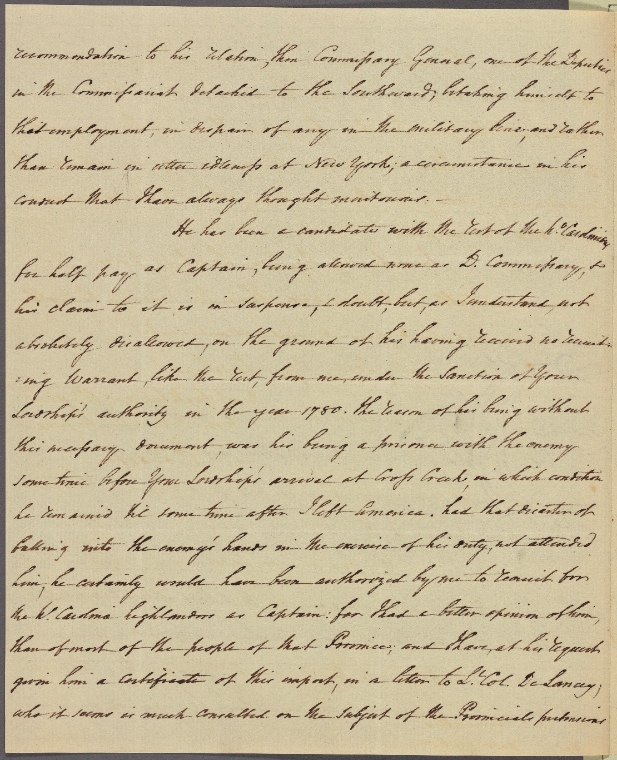 recommendation to his relation, then Commissary General, one of the Deputies
in the Commissariat detached to the Southward; betaking himself to
that employment, in despair of any in the military line, and rather
than remain in utter idleness at New York; a circumstance in his
conduct that I have always thought meritorious. –
He has been a candidate with the rest of the No. Carolinians
for half pay as Captain, being allowed none as D. Commissary, &
his claim to it is in suspence, & doubt, but, as I understand, not
absolutely disallowed, on the ground of his having received no recruit-
:ing Warrant, like the rest, from me, under the Sanction of Your
Lordship's authority in the year 1780. the reason of his being without
this necessary document, was his being a prisoner with the enemy
some time before Your Lordship's arrival at Cross Creek, in which condition
he remained til some time after I left America. had that disaster of
falling into the enemy's hands in the exercise of his duty, not attended
him, he certainly would have been authorized by me to recruit for
the No. Carolina highlanders as Captain: for I had a better opinion of him,
than of most of the people of that Province; and I have, at his request
given him a certificate of this import, in a letter to Lt. Col. De Lancey;
who it seems is much consulted on the subject of the Provincials pretensions